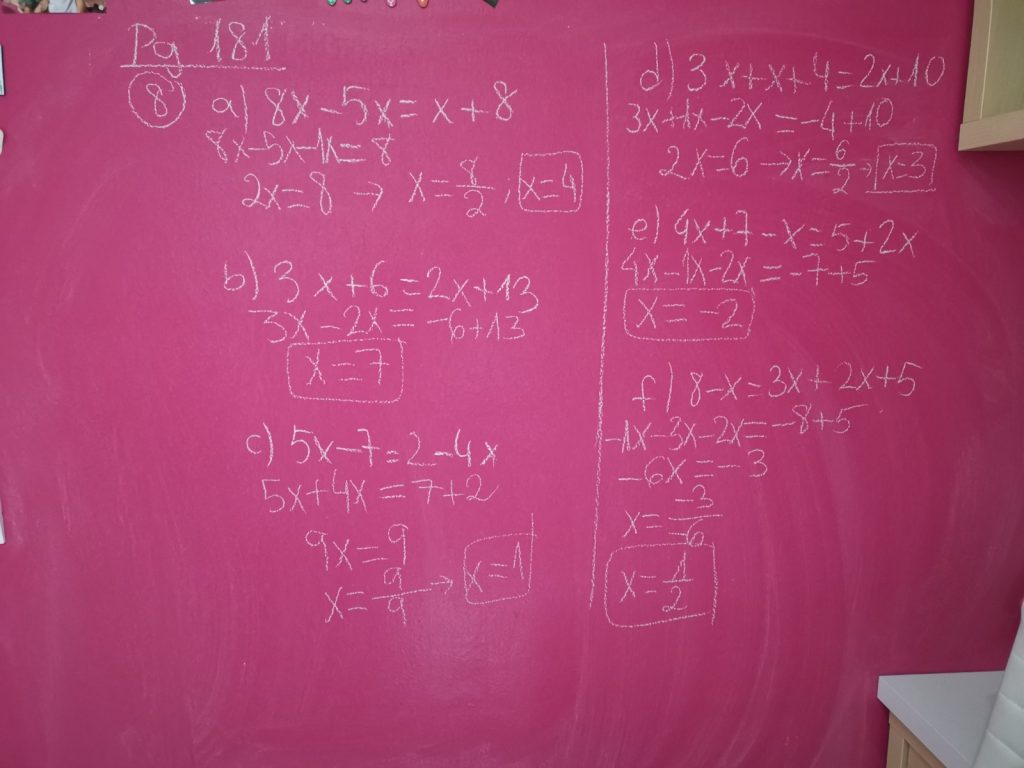 Pg 181
8 a) 8x - 5x = x + 8
8x - 5x - 1x = 8
2x = 8 → x = 8/2, x = 4
b) 3x + 6 = 2x + 13
3x - 2x = -6 + 13
x = 7
c) 5x - 7 = 2 - 4x
5x + 4x = 7 + 2
9x = 9
x = 9/9 → x = 1
d) 3x + x + 4 = 2x + 10
3x + 1x - 2x = -4 + 10
2x = 6 → x = 6/2 → x = 3
e) 4x + 7 - x = 5 + 2x
4x - 1x - 2x = -7 + 5
x = -2
f) 8 - x = 3x + 2x + 5
-1x - 3x - 2x = -8 + 5
-6x = -3
x = -3/-6
x = 1/2